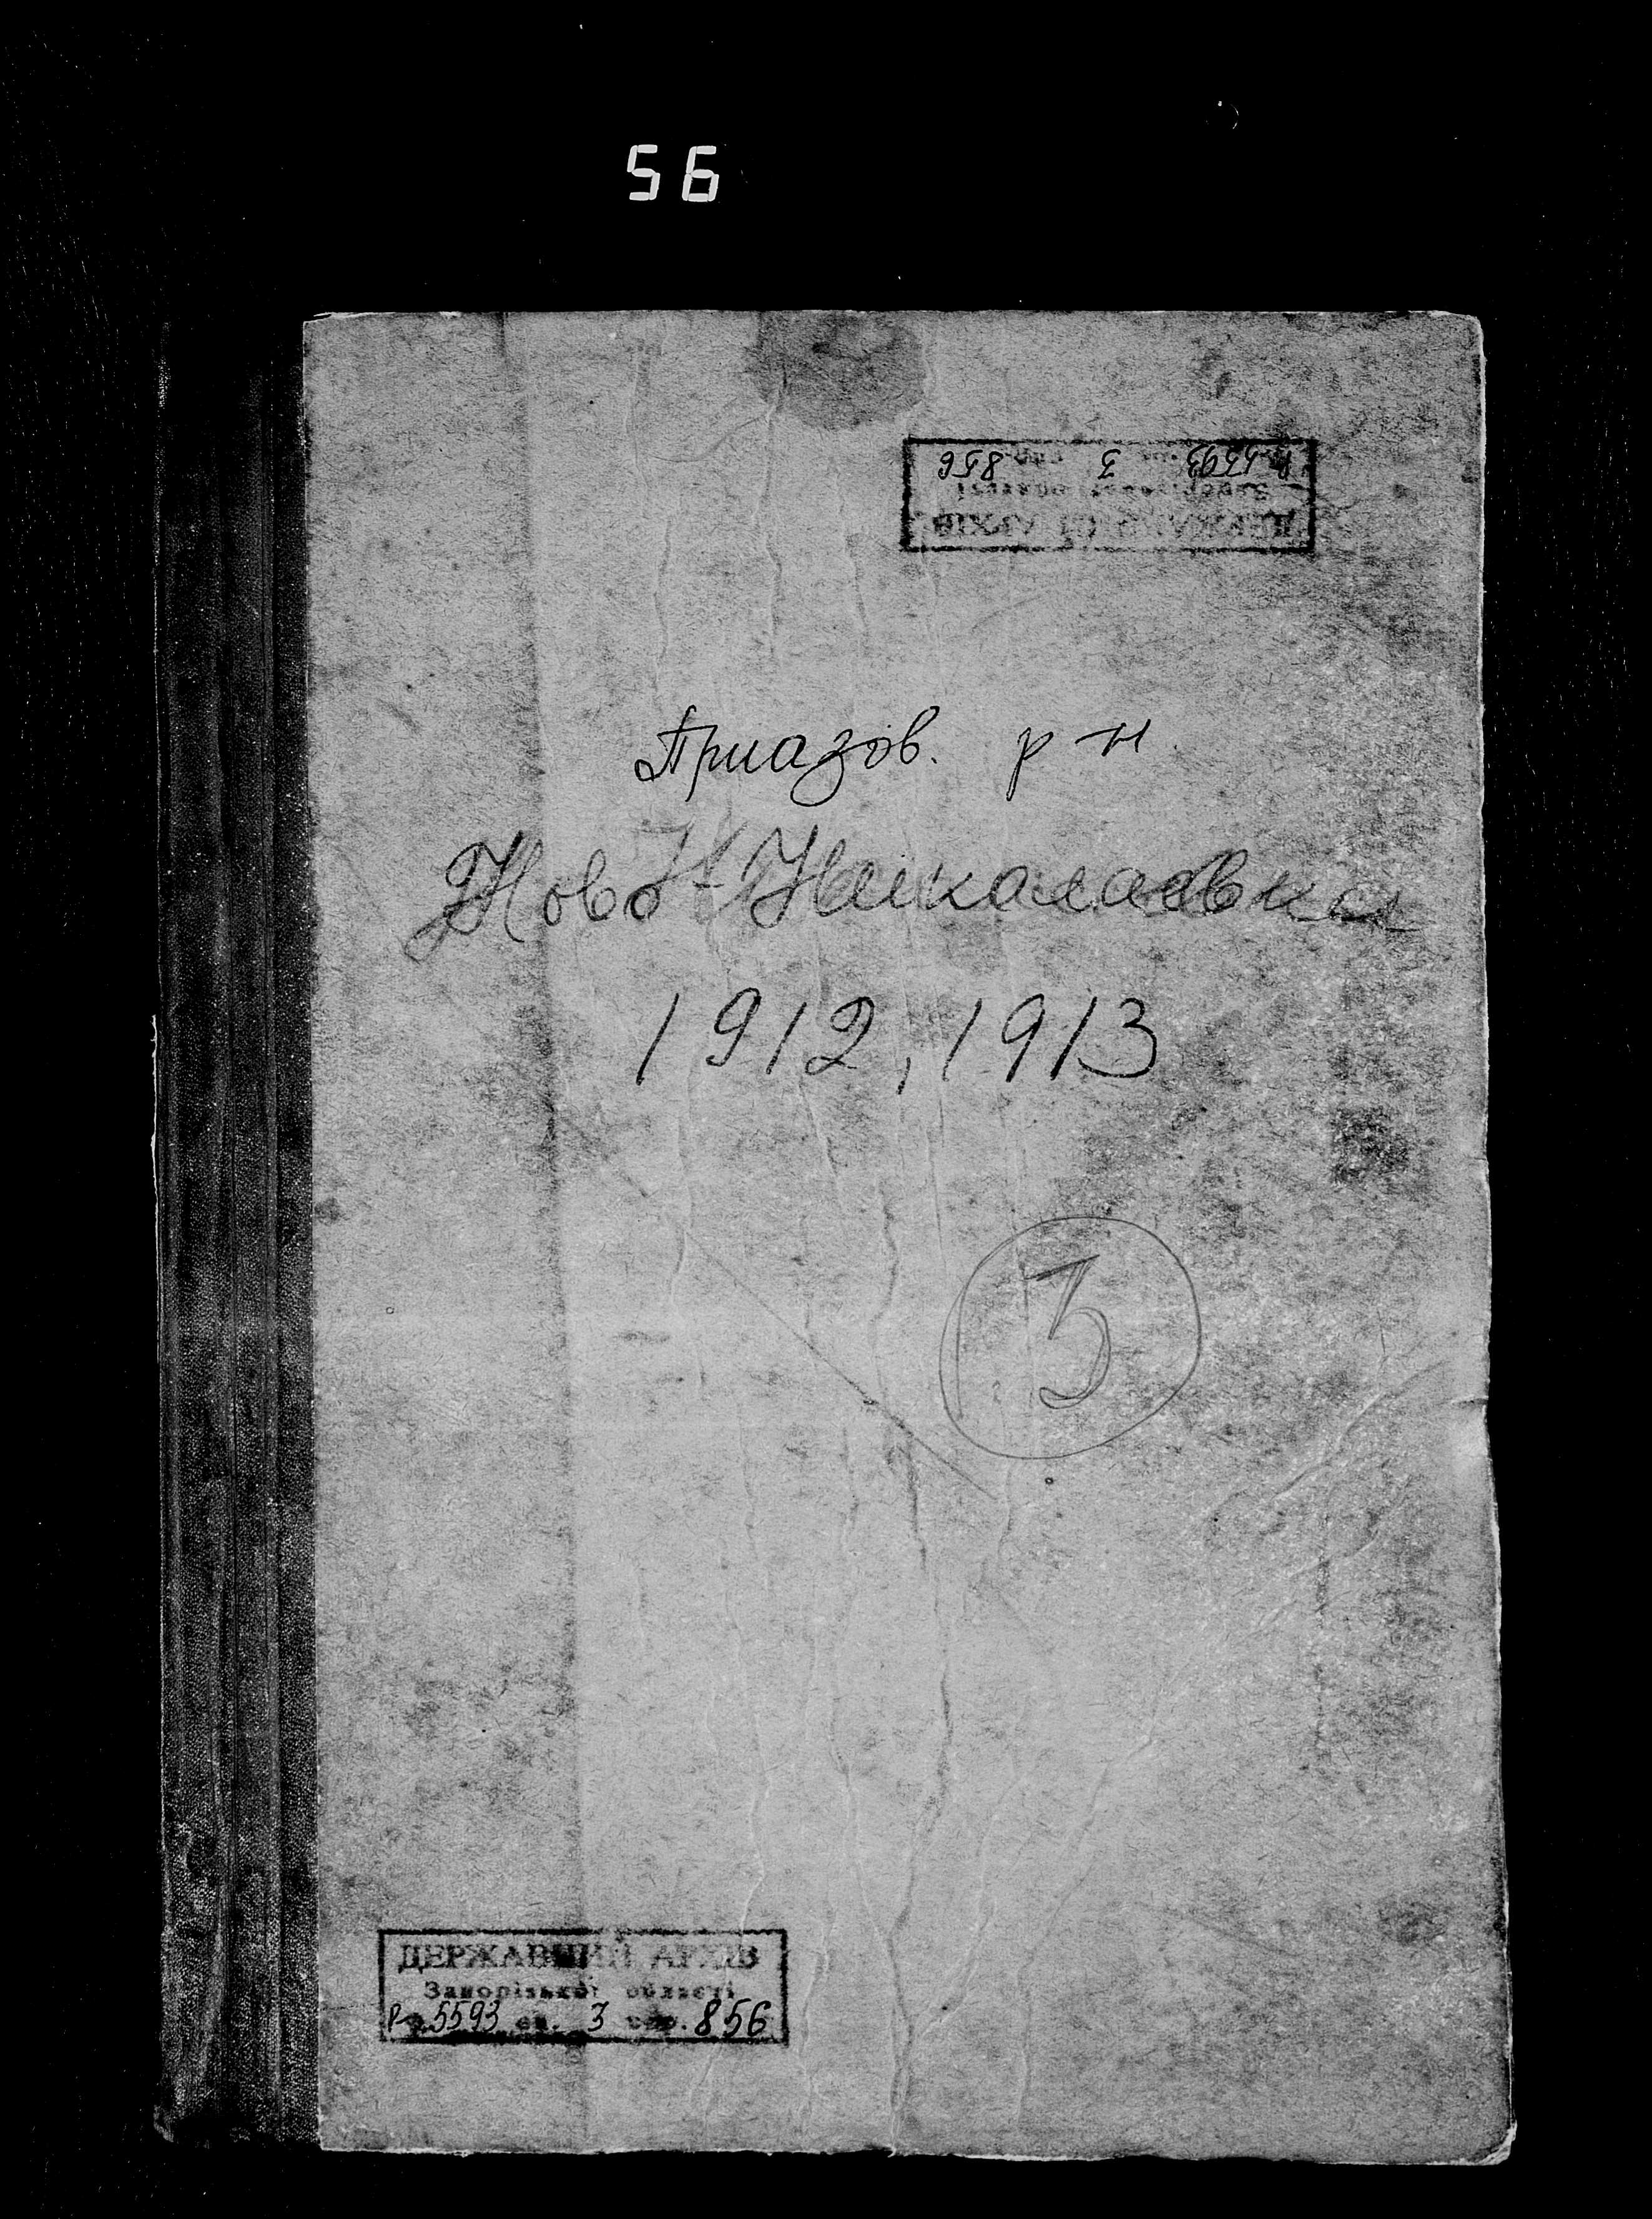 56
Р-5593 3 856
Запорізької області
ДЕРЖАВНИЙ АРХІВ
Приазов. р-н.
Ново-Николаевка
1912, 1913
3
ДЕРЖАВНИЙ АРХІВ
Запорізької області
Р-5593 оп. 3 спр. 856